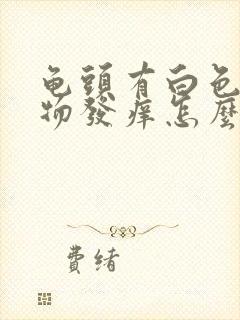 龟頭有白色
物發痒怎麼
費緒